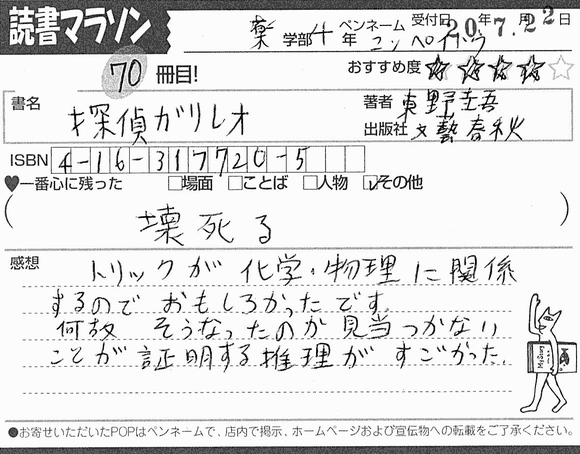 読書マラソン
薬 学部 4 年 ペンネーム コンペイトウ 受付日 20年7.22日
70 冊目! おすすめ度 ★★★★☆
書名 探偵ガリレオ
著者 東野圭吾
出版社 文藝春秋
ISBN 4-16-317720-5
♥一番心に残った □場面 □ことば □人物 ☑その他
( 壊死る )
感想 トリックが化学・物理に関係
するので おもしろかったです。
何故 そうなったのか見当つかない
ことが証明する推理が すごかった.
●お寄せいただいたPOPはペンネームで、店内で掲示、ホームページおよび宣伝物への転載をご了承ください。